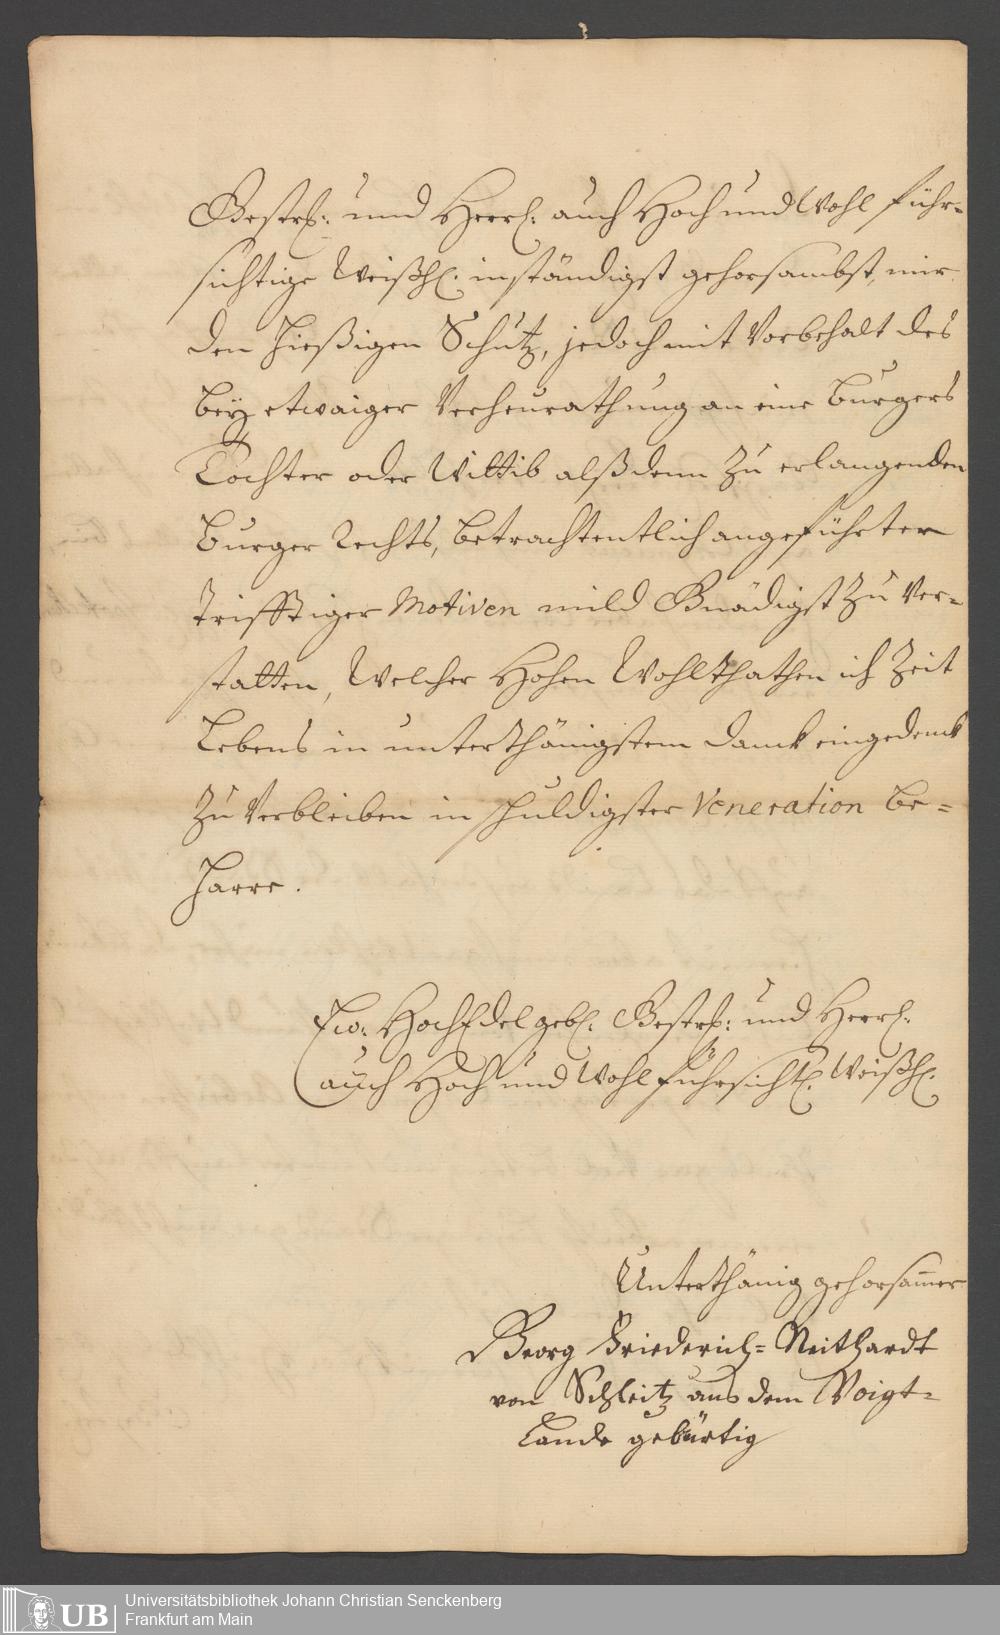 Gestr: und Herrl: auch Hoch und Wohl führ-
sichtige Weißh. inständigst gehorsambst, mir
den hießigen Schutz, jedoch mit Vorbehalt des
bey etwaiger Verheurathung an eine Burgers
Tochter oder Wittib alßdenn zu erlangenden
Burger Rechts, betrachtentlich angeführter
trifftiger Motiven mild Gnädigst zu Ver-
statten, Welcher Hohen Wohlthathen ich Zeit
Lebens in unterthänigstem Danck eingedenck
zu Verbleiben in schuldigster Veneration be=
harre.
Ew: HochEdelgebl. Gestr: und Herrl.
auch Hoch und Wohl fürsichtl. Weißh.
Unterthänig gehorsamer
Georg Friederich= Neithardt
von Schleitz aus dem Voigt=
Lande gebürtig
UB
Universitätsbibliothek Johann Christian Senckenberg
Frankfurt am Main